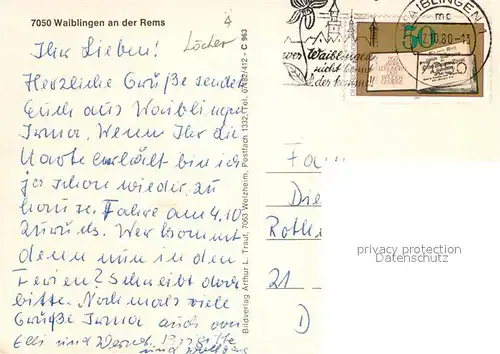 7050 Waiblingen an der Rems
4
Löcher
Ihr Lieben!
Herzliche Grüße sendet
Euch aus Waiblingen
Irma. Wenn Ihr die
Karte erhält bin ich
ja schon wieder zu
hause. Fahre am 4.10
zurück. Wer kommt
denn nun in den
Ferien? Schreibt doch
bitte. Nochmals viele
Grüße Irma auch von
Elli und Bernd. Brigitte
und
Bildverlag Arthur L. Traut, 7063 Welzheim, Postfach 1332, Tel. 07182/412 - C 963
WAIBLINGEN 1
mc
.10.80-13
50
wer Waiblingen
nicht kennt
der kommt!
Fa
Die
Rothe
21
D
privacy protection
Datenschutz